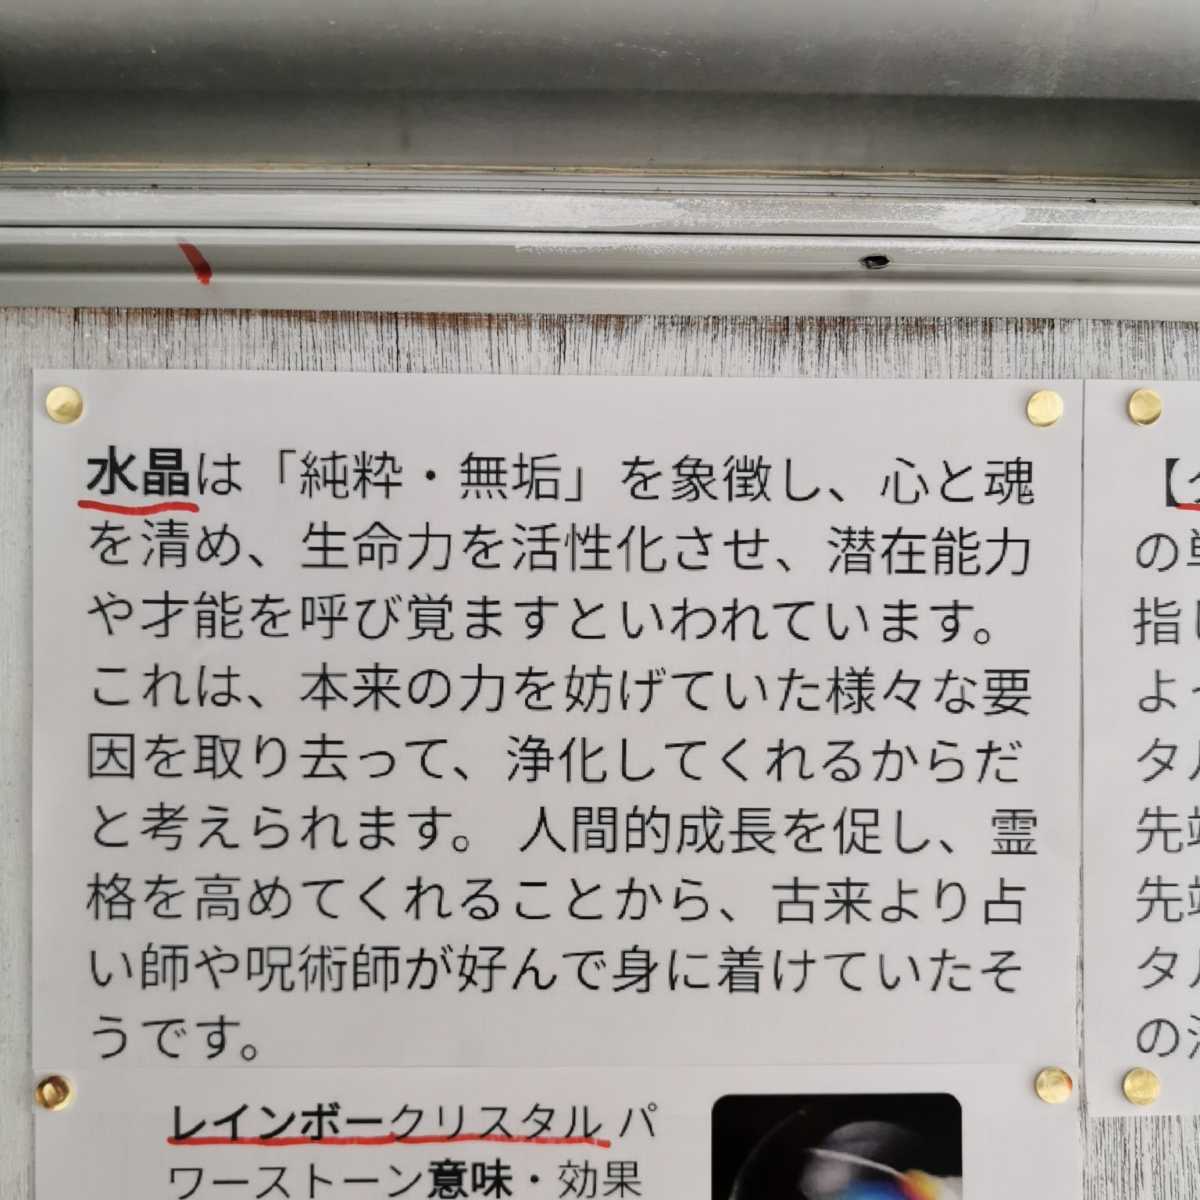 水晶は「純粋・無垢」を象徴し、心と魂
を清め、生命力を活性化させ、潜在能力
や才能を呼び覚ますといわれています。
これは、本来の力を妨げていた様々な要
因を取り去って、浄化してくれるからだ
と考えられます。 人間的成長を促し、霊
格を高めてくれることから、古来より占
い師や呪術師が好んで身に着けていたそ
うです。
レインボークリスタル パ
ワーストーン意味・効果
【
の
指
よ
タ
先
先
タ
の